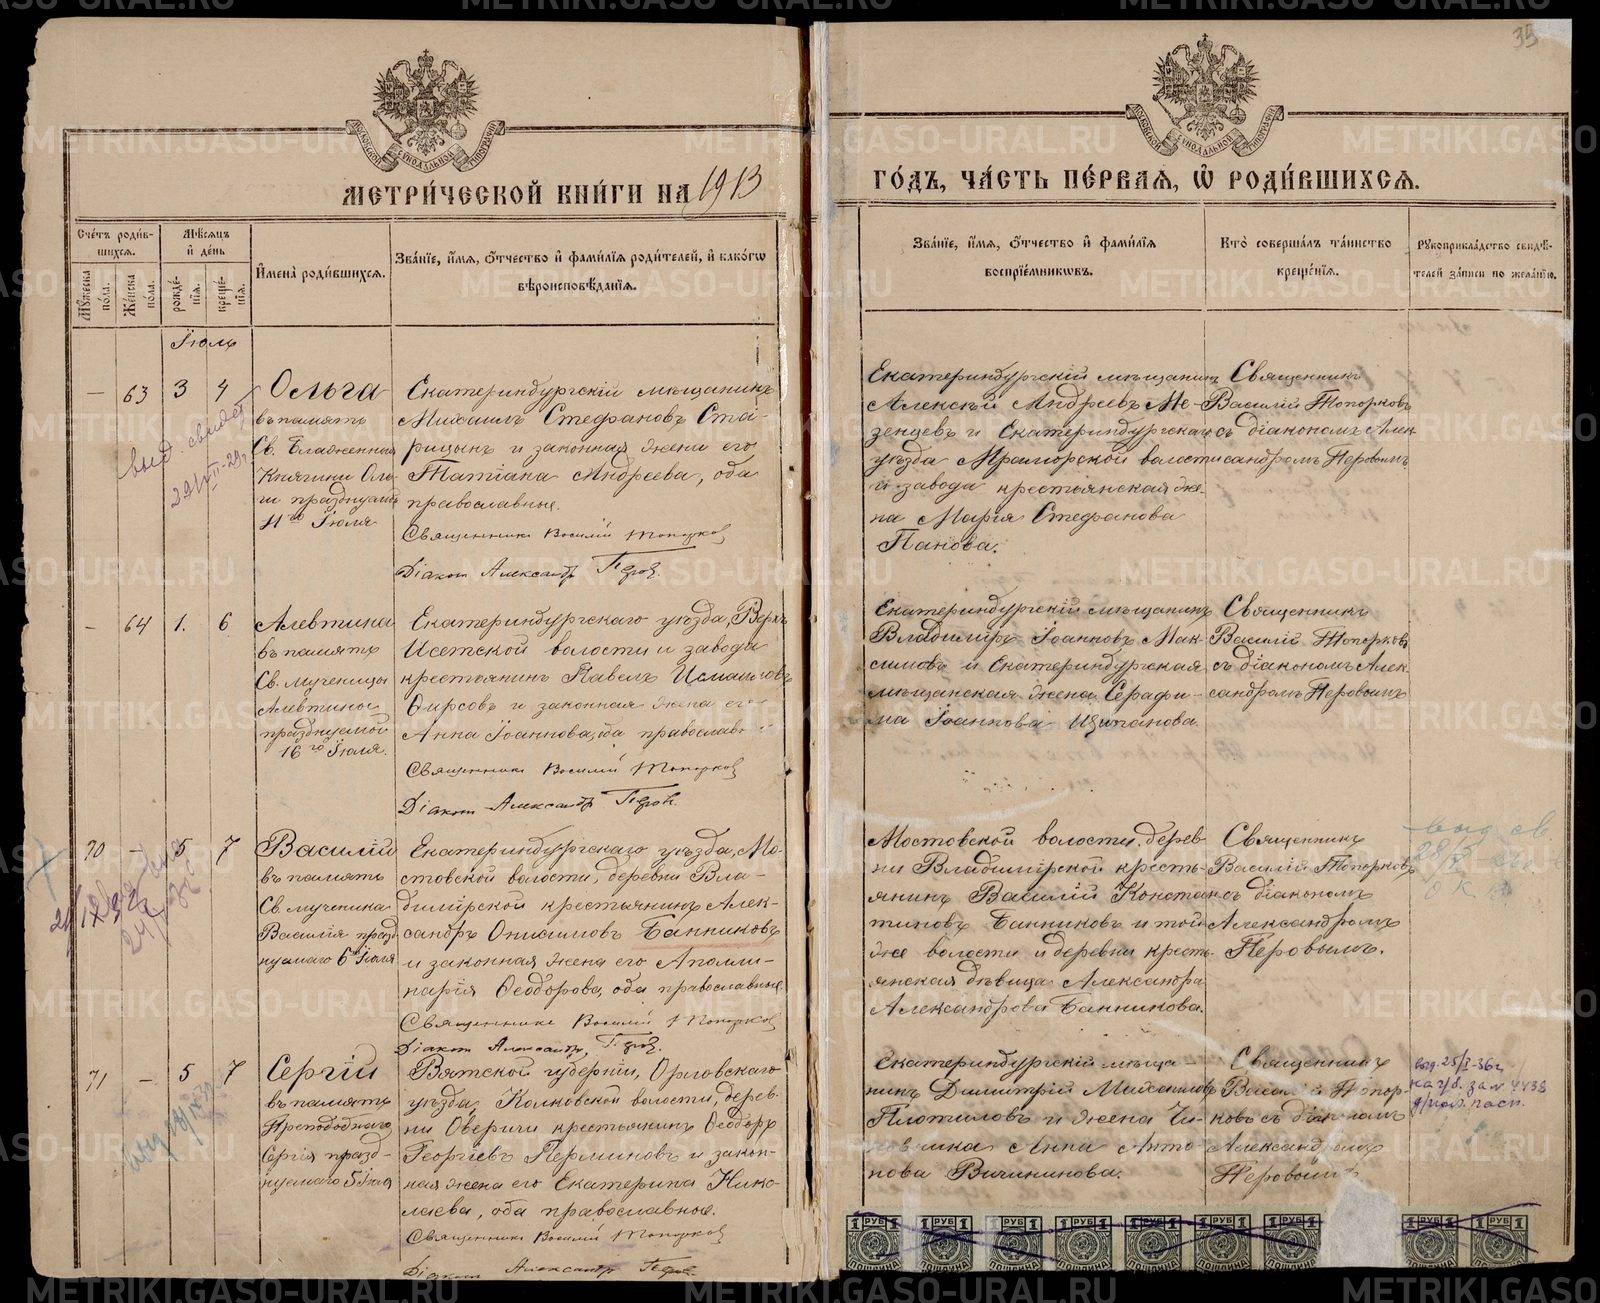 35
МЕТРИ́ЧЕСКОЙ КНИ́ГИ НА 1913
ГО́ДЪ, ЧА́СТЬ ПЕ́РВАЯ, Ѡ РОДИ́ВШИХСЯ.
Сче́тъ роди́в-
шихся.
Мѣ́сяцъ
и́ де́нь
Му́жеска
по́ла.
Же́нска
по́ла.
рожде́-
нїя.
креще́-
нїя.
И҆мена̀ роди́вшихся.
Зва́нїе, и҆́мя, ѻ҆́тчество и҆ фами́лїя роди́телей, и҆ како́гѡ
вѣроисповѣ́данїя.
Зва́нїе, и҆́мя, ѻ҆́тчество и҆ фами́лїя
воспрїе́мникѡвъ.
Кто̀ соверша́лъ та́инство
креще́нїя.
Рукоприкла́дство свидѣ́-
телей за́писи по жела́нїю.
Іюль
— 63 3 4
Ольга
въ память
Св. Блаженныя
Княгини Оль-
ги празднуемой
11го Іюля
Екатеринбургскій мѣщанинъ
Михаилъ Стефановъ Ста-
рицынъ и законная жена его
Татіана Андреева, оба
православные.
Священникъ Василій Топорков
Діаконъ Александръ Перов.
Екатеринбургскій мѣщанинъ
Алексѣй Андреевъ Ме-
зенцевъ и Екатеринбургскаго
уѣзда Мраморской волости
и завода крестьянская же-
на Марія Стефанова
Панова.
Священникъ
Василій Топорковъ
съ діакономъ Алек
сандромъ Перовымъ
— 64 1. 6
Алевтина
въ память
Св. мученицы
Алевтины
празднуемой
16го Іюля.
Екатеринбургскаго уѣзда, Верхъ
Исетской волости и завода
крестьянинъ Павелъ Исмаиловъ
Ѳирсовъ и законная жена его
Анна Іоаннова, оба православн
Священникъ Василій Топорков
Діаконъ Александръ Перов.
Екатеринбургскій мѣщанинъ
Владимиръ Іоанновъ Мак-
симовъ и Екатеринбургская
мѣщанская жена Серафи-
ма Іоаннова
Священникъ
Василій Топорковъ
съ діакономъ Алек
сандромъ Перовымъ
70 — 5 7
Василій
въ память
Св. мученика
Василія празд
нуемаго 6го Іюля
Екатеринбургскаго уѣзда, Мо-
стовской волости, деревни Вла-
димірской крестьянинъ Алек-
сандръ Онисимовъ Банниковъ
и законная жена его Аполли-
нарія Ѳеодорова, оба православные.
Священникъ Василій Топорков
Діаконъ Александръ Перов.
Мостовской волости, дерев-
ни Владимірской кресть-
янинъ Василій Констан-
тиновъ Банниковъ и той
же волости и деревни кресть-
янская дѣвица Александра
Александрова Банникова.
Священникъ
Василій Топорковъ
съ діакономъ
Александромъ
Перовымъ.
71 — 5 7
Сергій
въ память
Преподобнаго
Сергія празд-
нуемаго 5 Іюля
Вятской губерніи, Орловскаго
уѣзда, Колковской волости, дерев-
ни Оверичи крестьянинъ Ѳеодоръ
Георгіевъ Перминовъ и закон-
ная жена его Екатерина Нико-
лаева, оба православные.
Священникъ Василій Топорков
Діаконъ Александръ Перов.
Екатеринбургскій мѣща-
нинъ Димитрій Михаиловъ
Плотиловъ и жена Чи-
новника Анна Анто-
нова Вичинипова.
Священникъ
Василій Топор-
ковъ съ діакономъ
Александромъ
Перовымъ
выд. 25/I-36 г.
1 РУБ 1
ПОШЛИНА
METRIKI.GASO-URAL.RU